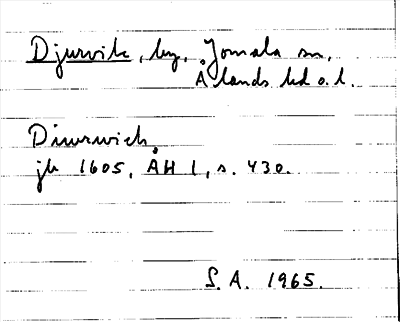 Djurvik, by, Jomala sn,
Ålands hd o. l.
Diurwich.
jb 1605, ÅH 1, s. 430.
S. A. 1965.